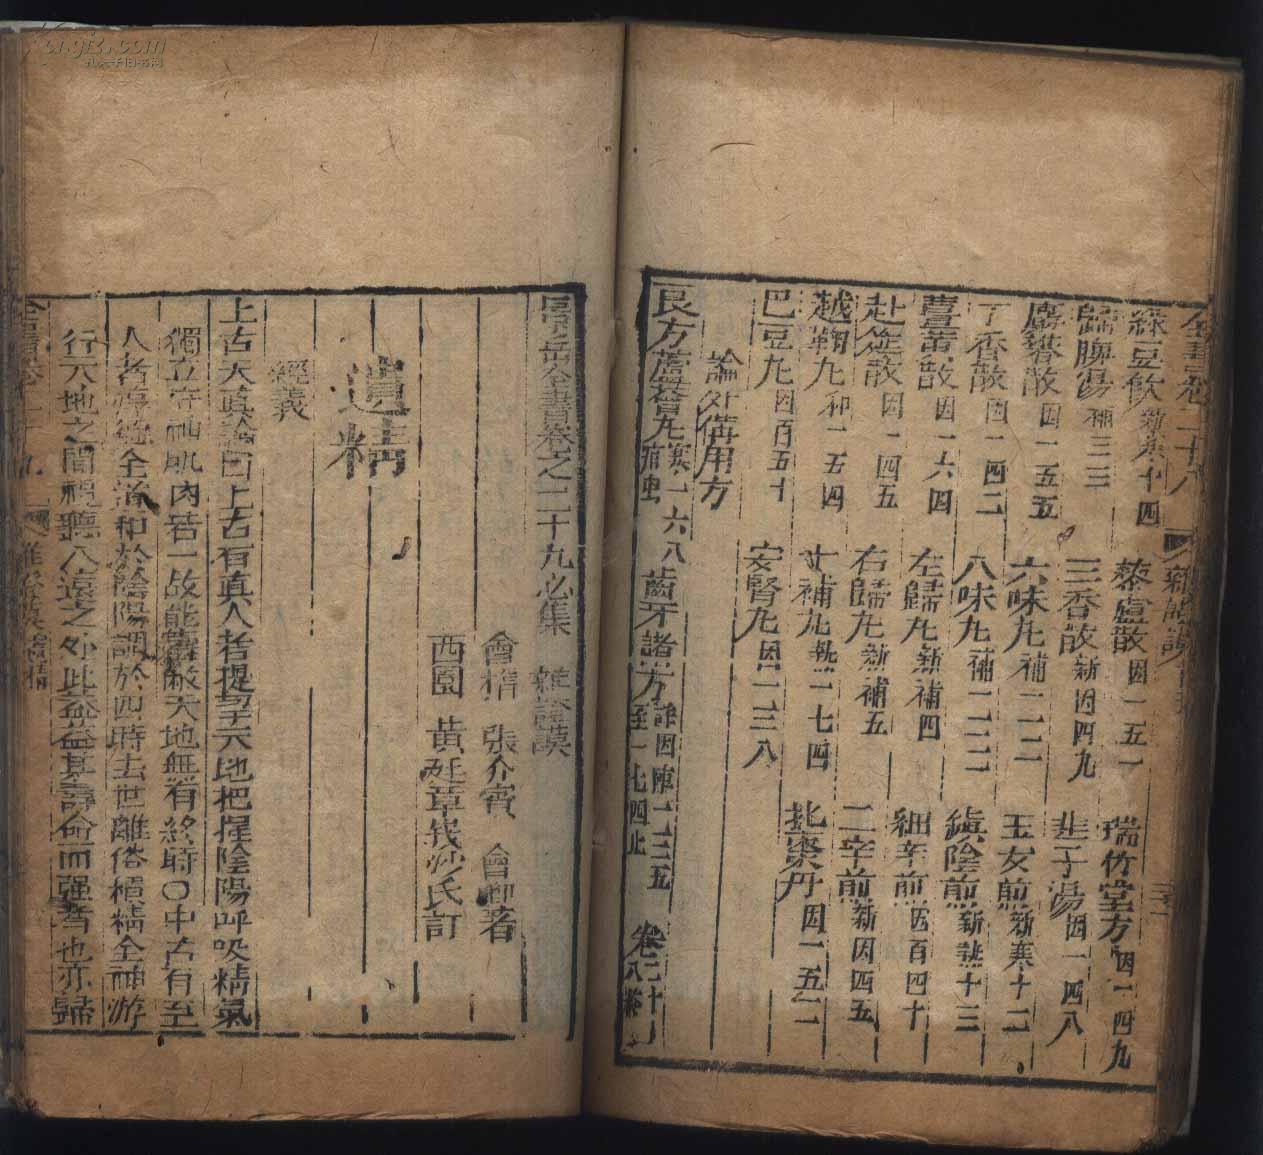 全書卷二十八 雜證謨
綠豆飲新寒十四 藜蘆散因一五一 瑞竹堂方因一四九
歸脾湯補三三 三香散新因四九 韭子湯因一四八
麝香散因一五五 六味丸補一二一 玉女煎新寒十二
丁香散因一四二 八味丸補一二二 鎮陰煎新熱十三
薑黃散因一六四 左歸丸新補四 細辛煎因百四十
赴筵散因一四五 右歸丸新補五 二辛煎新因四五
越鞠丸和一五四 丈補丸熱一七四 北棗丹因一五二
巴豆丸因百五十 安腎丸因一二三八
論外備用方
良方蘆薈丸寒一六八疳蟲 齒牙諸方詳因陣一二三五至一七四止 卷二十八終
景岳全書卷之二十九必集 雜證謨
會稽 張介賓 會卿著
西園 黃廷章 炒氏訂
遺精
經義
上古天真論曰上古有真人者提挈天地把握陰陽呼吸精氣
獨立守神肌肉若一故能壽敝天地無有終時〇中古有至
人者淳德全道和於陰陽調於四時去世離俗積精全神游
行天地之間視聽八遠之外此蓋益其壽命而強者也亦歸
全書卷二十九 雜證謨 遺精